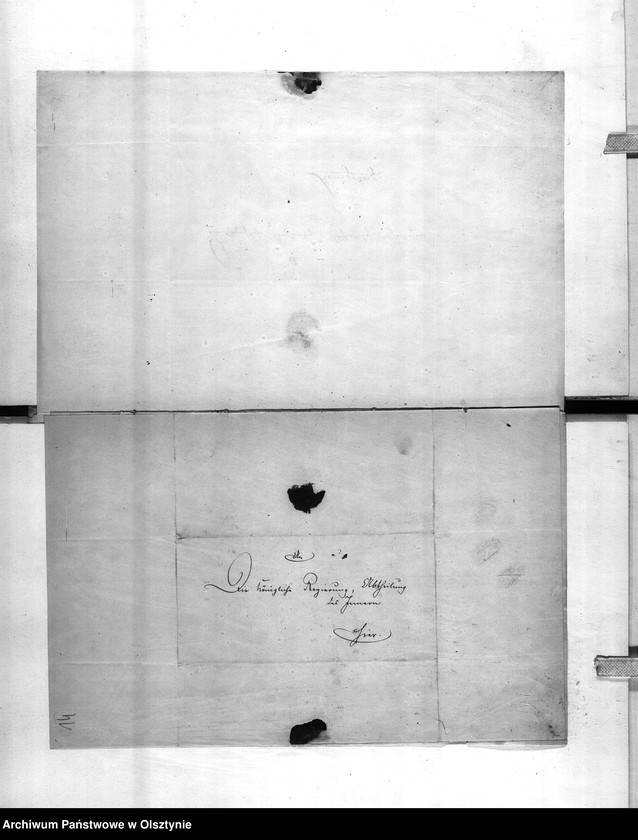 An
Die Königliche Regierung, Abtheilung
des Innern
Hier.
14
Archiwum Państwowe w Olsztynie